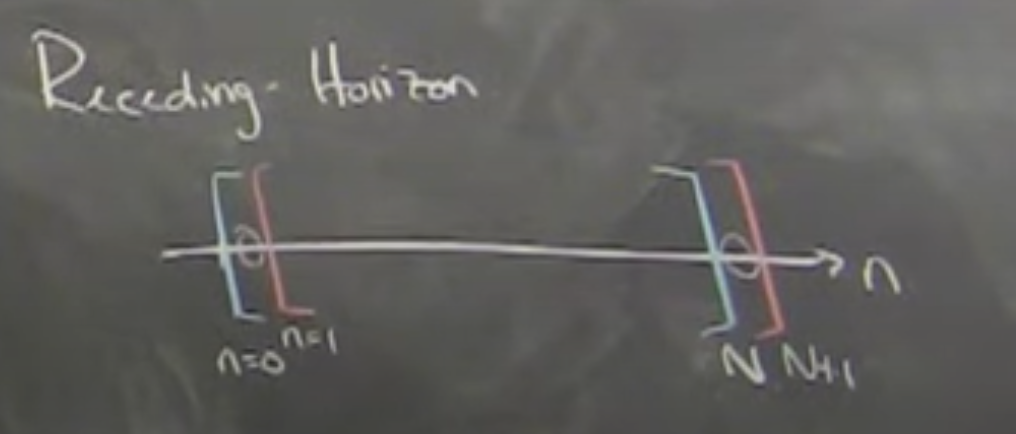 Receding-Horizon
n
n=0 n=1 N N+1